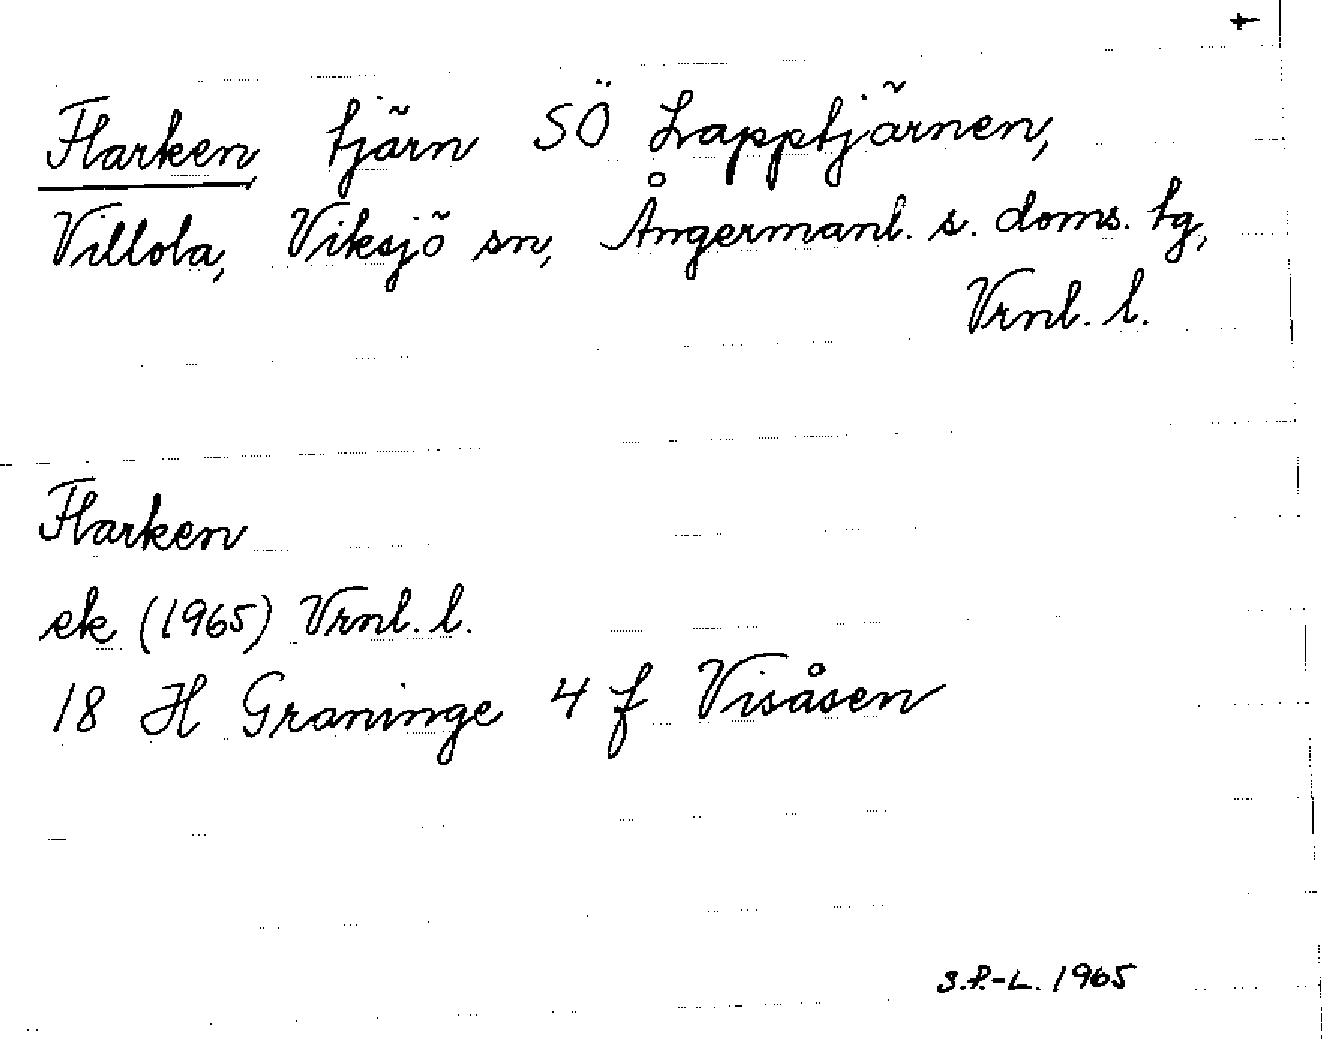 Flarken, tjärn SÖ Lapptjärnen,
Villola, Viksjö sn, Ångermanl. s. doms. tg,
Vrnl. l.
Flarken
ek (1965) Vrnl. l.
18 H Graninge 4 f Visåsen
S.P.-L. 1965